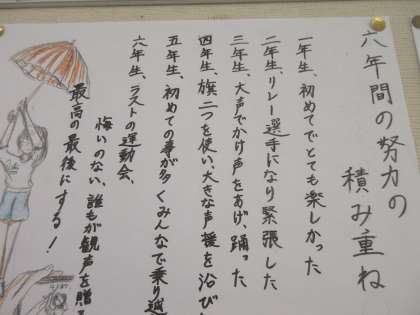 六年間の努力の
積み重ね
一年生、初めてでとても楽しかった
二年生、リレー選手になり緊張した
三年生、大声でかけ声をあげ、踊った
四年生、旗二つを使い、大きな声援を浴び
五年生、初めての事が多くみんなで乗り越
六年生、ラストの運動会、
悔いのない、誰もが観声を贈
最高の最後にする！